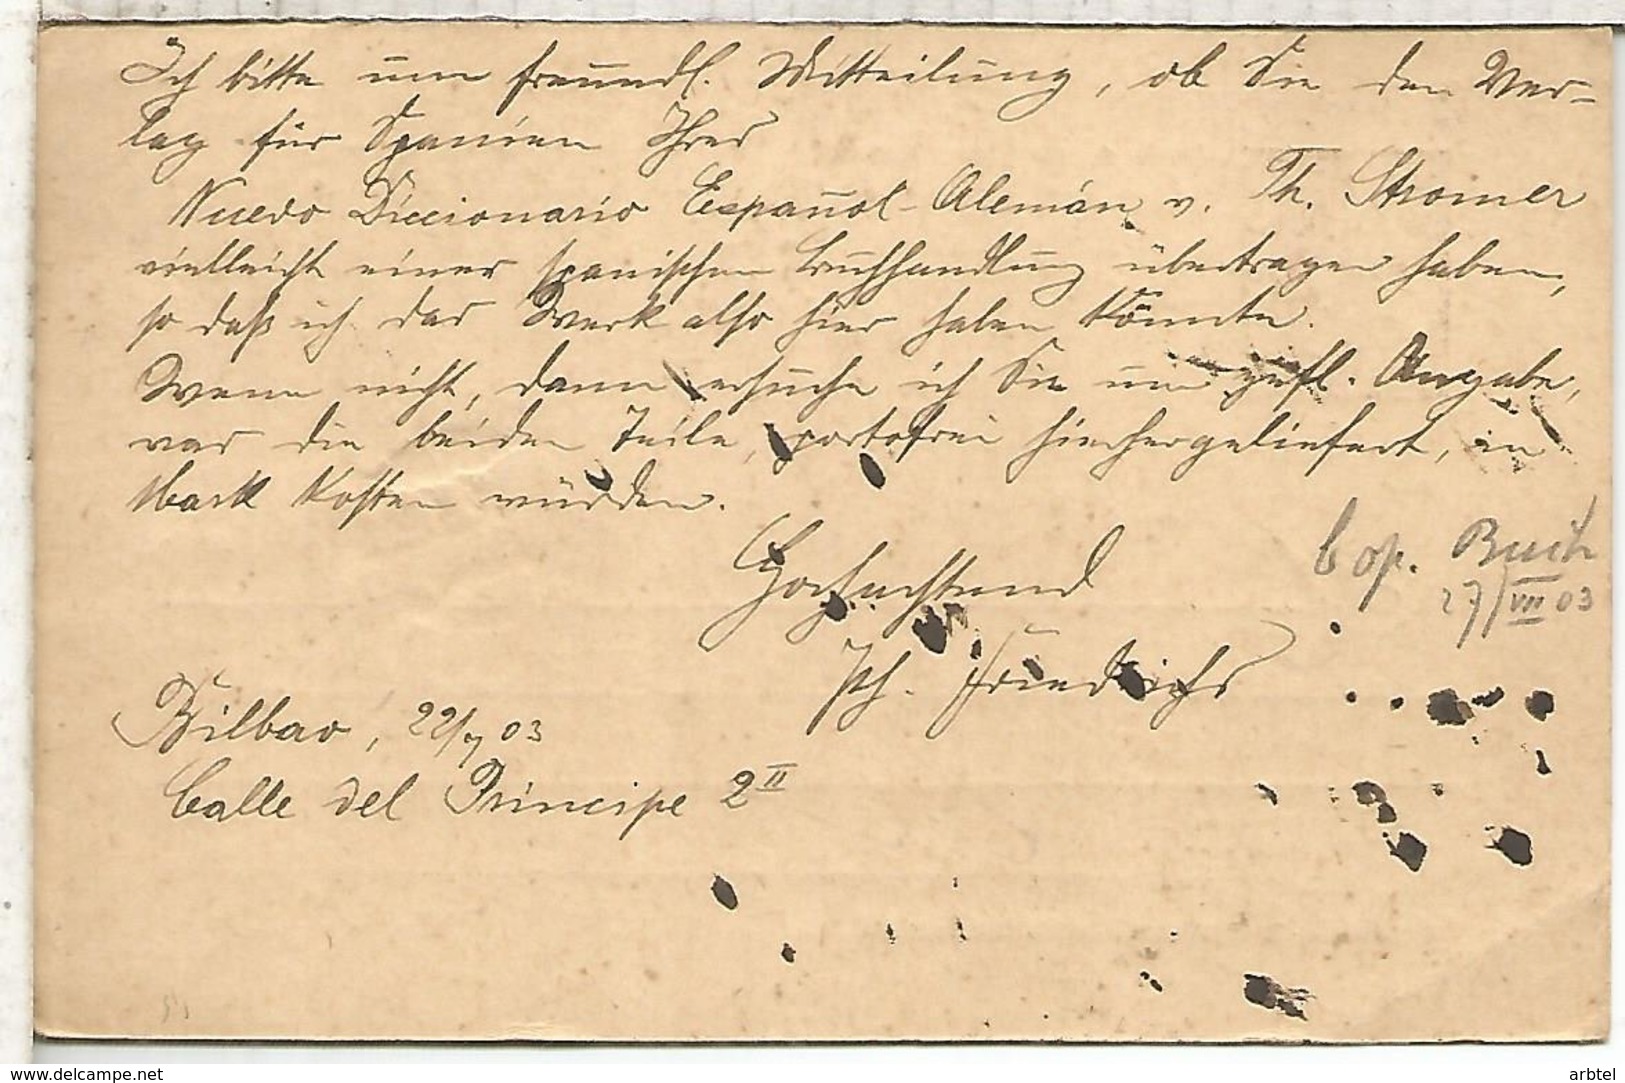 Ich bitte um freundl. Mitteilung, ob Sie den Ver-
lag für Spanien Ihres
Nuevo Diccionario Español-Alemán v. Th. Stromer
vielleicht einer spanischen Buchhandlung übertragen haben,
so daß ich das Werk also hier haben könnte.
Wenn nicht, dann ersuche ich Sie um gefl. Angabe,
was die beiden Teile, portofrei hierhergeliefert, in
Mark kosten würden.
Hochachtend
Jph. Friedrichs
Cop. Buch
27/VII 03
Bilbao, 22/7 03
Calle del Principe 2 II
www.delcampe.net
arbtel